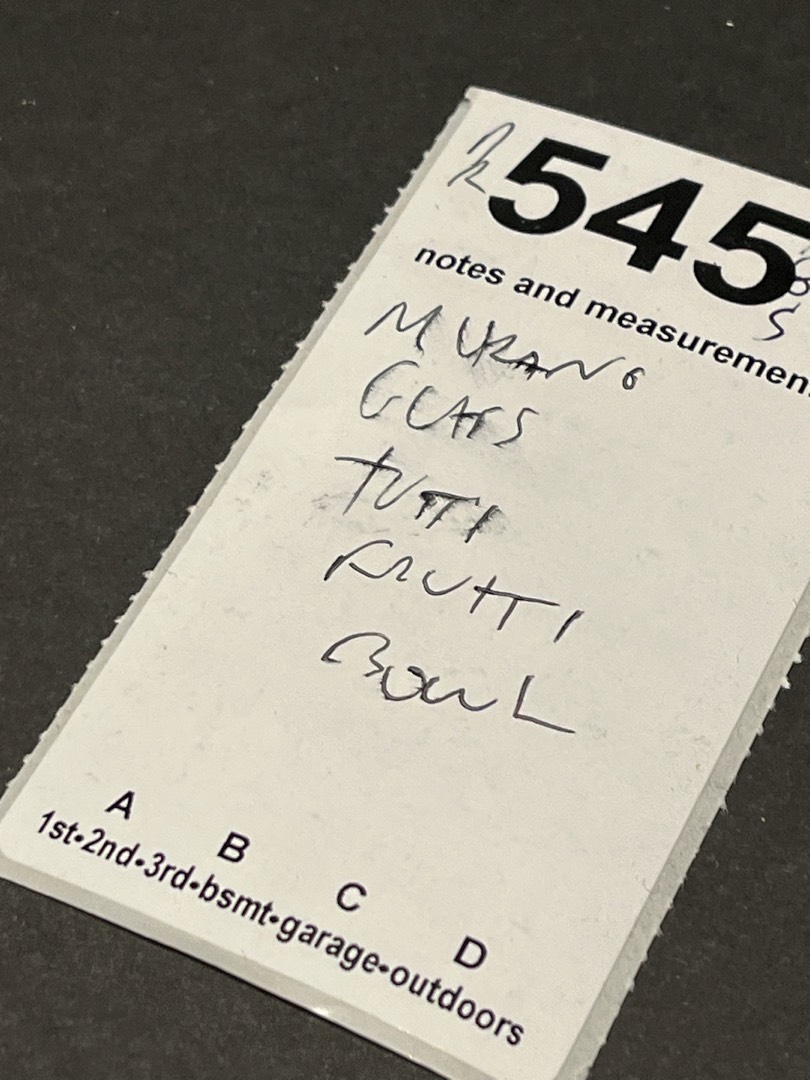 545
notes and measuremen
MURANO
GLASS
TUTTI
FRUTTI
BOWL
A B C D
1st•2nd•3rd•bsmt•garage•outdoors